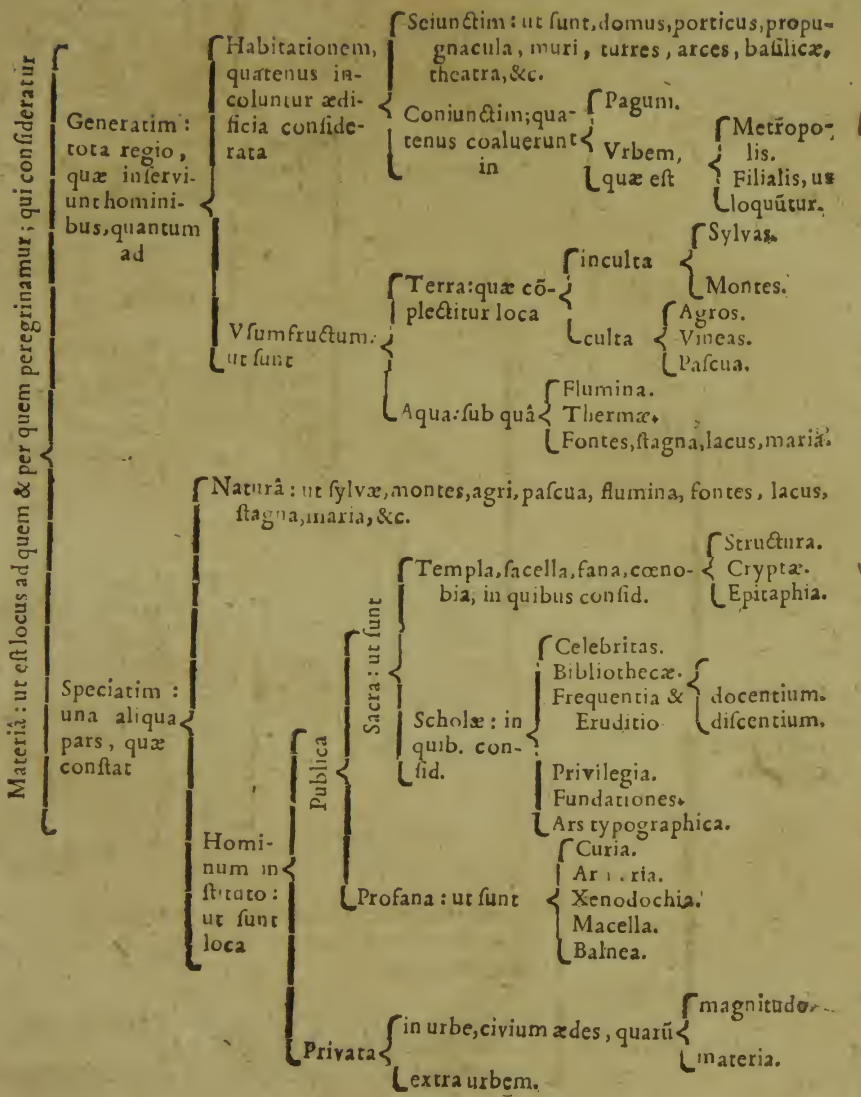 Materiâ : ut eſt locus ad quem & per quem peregrinamur ; qui conſideratur
Generatim :
tota regio,
quæ inſervi-
unt homini-
bus, quantum
ad
Habitationem,
quatenus in-
coluntur ædi-
ficia conſide-
rata
Sciunctim : ut ſunt, domus, porticus, propu-
gnacula, muri, turres, arces, baſilicæ,
theatra, &c.
Coniunctim; qua-
tenus coaluerunt
in
Pagum.
Vrbem,
quæ eſt
Metropo-
lis.
Filialis, ut
loquūtur.
Vſumfructum.
ut ſunt
Terra: quæ cō-
plectitur loca
inculta
Sylvas.
Montes.
culta
Agros.
Vineas.
Paſcua.
Aqua: ſub quâ
Flumina.
Thermæ.
Fontes, ſtagna, lacus, maria.
Speciatim :
una aliqua
pars, quæ
conſtat
Naturâ : ut ſylvæ, montes, agri, paſcua, flumina, fontes, lacus,
ſtagna, maria, &c.
Homi-
num in
ſtituto :
ut ſunt
loca
Publica
Sacra : ut ſunt
Templa, ſacella, fana, cœno-
bia, in quibus conſid.
Structura.
Cryptæ.
Epitaphia.
Scholæ : in
quib. con-
ſid.
Celebritas.
Bibliothecæ.
Frequentia &
Eruditio
docentium.
diſcentium.
Privilegia.
Fundationes.
Ars typographica.
Profana : ut ſunt
Curia.
Xenodochia.
Macella.
Balnea.
Privata
in urbe, civium ædes, quarū
magnitudo.
materia.
extra urbem.